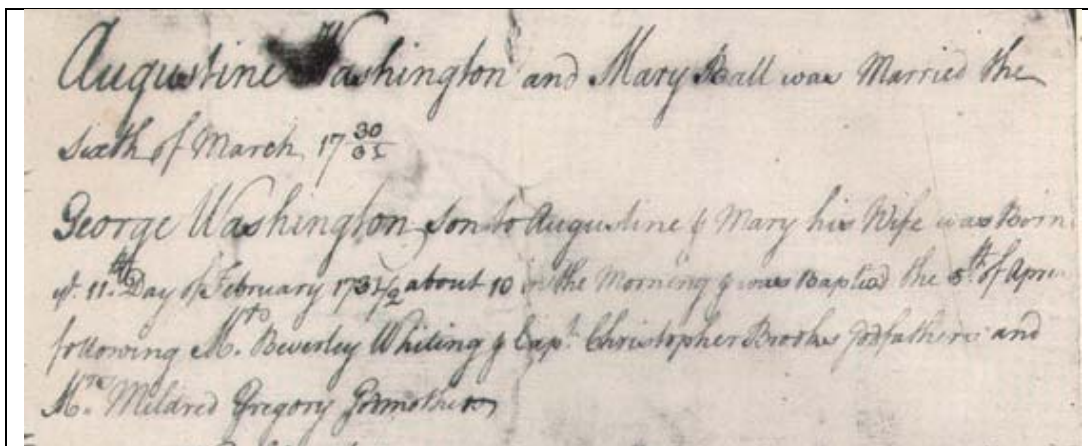 Augustine Washington and Mary Ball was Married the
Sixth of March 17 30/31
George Washington Son to Augustine & Mary his Wife was Born
ye 11th Day of February 1731/2 about 10 in the Morning & was Baptiz'd the 5th of April
following Mr Beverley Whiting & Capt Christopher Brooks Godfathers and
Mrs Mildred Gregory Godmother